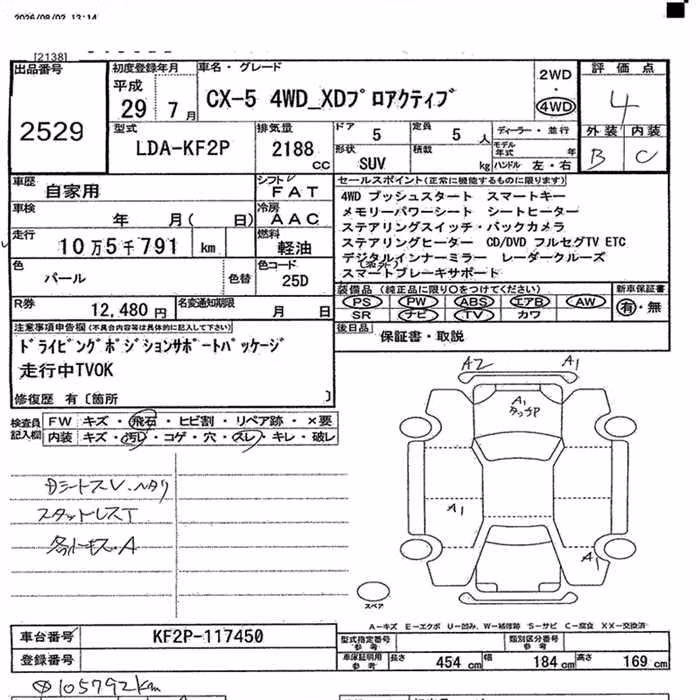 [2138]
出品番号
2529
初度登録年月
平成
29 7月
車名・グレード
CX-5 4WD_XDプロアクティブ
2WD
・
4WD
評価点
4
外装 内装
B C
型式
LDA-KF2P
排気量
2188 cc
ドア 5
定員 5 人
形状 SUV
積載 kg
ディーラー・並行
モデル年式 年
ハンドル 左・右
車歴
自家用
シフト
FAT
車検
年 月( 日)
冷房
AAC
走行
10万5千791 km
燃料
軽油
色
パール
色替
色コード
25D
R券
12,480円
名変通知期限
月 日
セールスポイント(正常に機能するものに限ります)
4WD プッシュスタート スマートキー
メモリーパワーシート シートヒーター
ステアリングスイッチ・バックカメラ
ステアリングヒーター CD/DVD フルセグTV ETC
デジタルインナーミラー レーダークルーズ
スマートブレーキサポート
装備品 (純正品に限り○をつけてください)
PS PW ABS エアB AW
SR ナビ TV カワ
新車保証書
有・無
後日品
保証書・取説
注意事項申告欄(不具合内容等は具体的に記入して下さい)
ドライビングポジションサポートパッケージ
走行中TVOK
修復歴 有〔箇所 〕
検査員
記入欄
FW キズ・飛石・ヒビ割・リペア跡・×要
内装 キズ・汚レ・コゲ・穴・スレ・キレ・破レ
スタットレスT
A2
A1
A1
タッチP
A1
A1
スペア
A-キズ E-エクボ U-凹み、W-補修跡 S-サビ C-腐食 XX-交換済
車台番号
KF2P-117450
登録番号
型式指定番号
参考
類別区分番号
参考
車庫証明用
参考
長さ 454 cm 幅 184 cm 高さ 169 cm
105792km